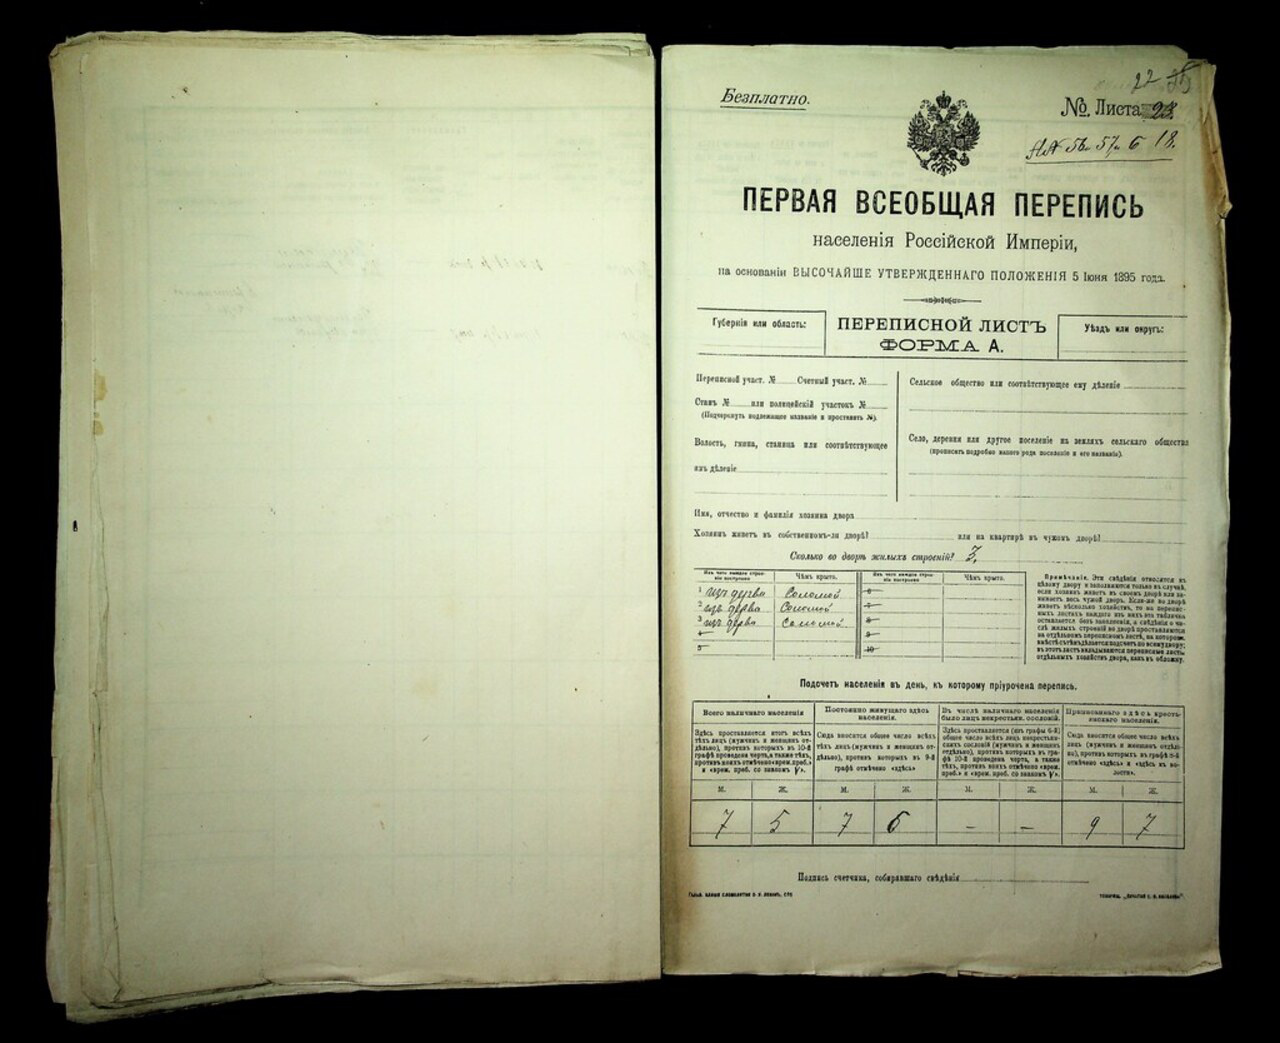 22
Безплатно.
№ Листа 23.
ПЕРВАЯ ВСЕОБЩАЯ ПЕРЕПИСЬ
населенія Россійской Имперіи,
на основаніи ВЫСОЧАЙШЕ УТВЕРЖДЕННАГО ПОЛОЖЕНІЯ 5 Іюня 1895 года.
Губернія или область:
ПЕРЕПИСНОЙ ЛИСТЪ
ФОРМА А.
Уѣздъ или округъ:
Переписной участ. № Счетный участ. №
Станъ № или полицейскій участокъ №
(Подчеркнуть подлежащее названіе и проставить №).
Волость, гмина, станица или соотвѣтствующее
имъ дѣленіе
Сельское общество или соотвѣтствующее ему дѣленіе
Село, деревня или другое поселеніе на земляхъ сельскаго общества
(прописать подробно какого рода поселеніе и его названіе).
Имя, отчество и фамилія хозяина двора
Хозяинъ живетъ въ собственномъ-ли дворѣ? или на квартирѣ въ чужомъ дворѣ?
Сколько во дворѣ жилыхъ строеній? 3,
Изъ чего каждое строе-
ніе построено
Чѣмъ крыто.
Изъ чего каждое строе-
ніе построено
Чѣмъ крыто.
1 изъ дерева Соломой
2 изъ дерева Соломой
3 изъ дерева Соломой
4
5
6
7
8
9
10
Примѣчаніе. Эти свѣдѣнія относятся къ
цѣлому двору и заполняются только въ случаѣ,
если хозяинъ живетъ въ своемъ дворѣ или за-
нимаетъ весь чужой дворъ. Если-же во дворѣ
живетъ нѣсколько хозяйствъ, то на перепис-
ныхъ листахъ каждаго изъ нихъ эта табличка
оставляется безъ заполненія, а свѣдѣнія о чи-
слѣ жилыхъ строеній во дворѣ проставляются
на отдѣльномъ переписномъ листѣ, на которомъ
вмѣстѣ съ тѣмъ дѣлается подсчетъ по всему двору;
въ этотъ листъ вкладываются переписные листы
отдѣльныхъ хозяйствъ двора, какъ въ обложку.
Подсчетъ населенія въ день, къ которому пріурочена перепись.
Всего наличнаго населенія
Постоянно живущаго здѣсь
населенія.
Въ числѣ наличнаго населенія
было лицъ некрестьян. сословій.
Приписаннаго здѣсь кресть-
янскаго населенія.
Здѣсь проставляется итогъ всѣхъ
тѣхъ лицъ (мужчинъ и женщинъ от-
дѣльно), противъ которыхъ въ 10-й
графѣ проведена черта, а также тѣхъ,
противъ коихъ отмѣчено «врем. преб.»
и «врем. преб. со знакомъ V».
Сюда вносится общее число всѣхъ
тѣхъ лицъ (мужчинъ и женщинъ от-
дѣльно), противъ которыхъ въ 9-й
графѣ отмѣчено «здѣсь»
Здѣсь проставляется (изъ графы 6-й)
общее число всѣхъ лицъ некрестьян-
скихъ сословій (мужчинъ и женщинъ
отдѣльно), противъ которыхъ въ гра-
фѣ 10-й проведена черта, а также
тѣхъ, противъ коихъ отмѣчено «врем.
преб.» и «врем. преб. со знакомъ V».
Сюда вносится общее число всѣхъ
лицъ (мужчинъ и женщинъ отдѣль-
но), противъ которыхъ въ графѣ 8-й
отмѣчено «здѣсь» и «здѣсь въ во-
лости».
М. Ж. М. Ж. М. Ж. М. Ж.
7 5 7 6 – – 9 7
Подпись счетчика, собиравшаго свѣдѣнія